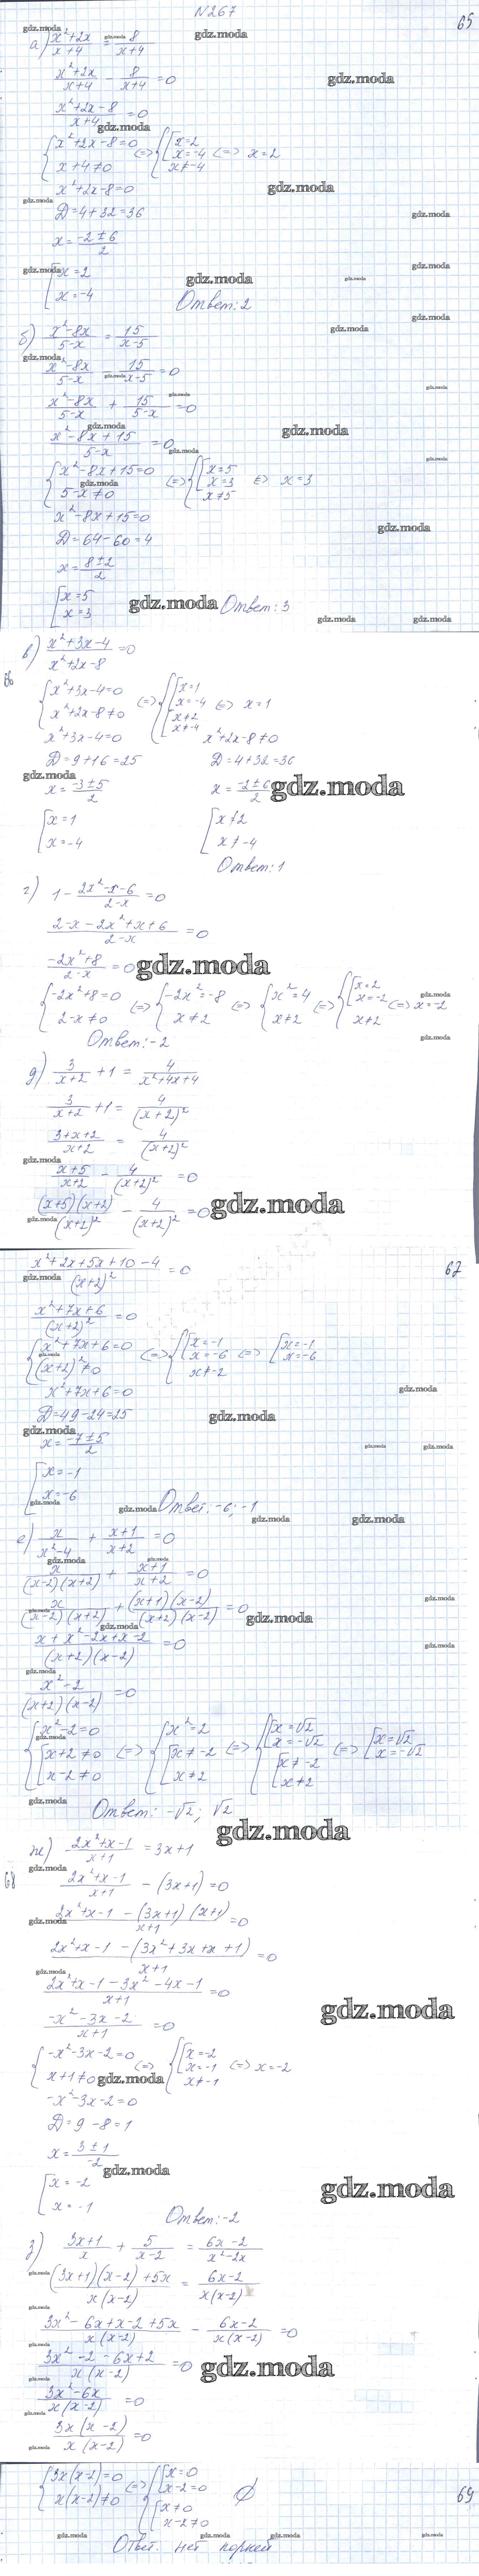 N267
65
а) (x²+2x)/(x+4) = 8/(x+4)
(x²+2x)/(x+4) - 8/(x+4) = 0
(x²+2x-8)/(x+4) = 0
{x²+2x-8=0 (=> {[x=2
x=-4 (=> x=2
x+4≠0 x≠-4
x²+2x-8=0
Д=4+32=36
x=(-2±6)/2
[x=2
x=-4
Ответ: 2
б) (x²-8x)/(5-x) = 15/(x-5)
(x²-8x)/(5-x) - 15/(x-5) = 0
(x²-8x)/(5-x) + 15/(5-x) = 0
(x²-8x+15)/(5-x) = 0
{x²-8x+15=0 (=> {[x=5
x=3 (=> x=3
5-x≠0 x≠5
x²-8x+15=0
Д=64-60=4
x=(8±2)/2
[x=5
x=3
Ответ: 3
в) (x²+3x-4)/(x²+2x-8) = 0
66
{x²+3x-4=0 (=> {[x=1
x=-4 (=> x=1
x²+2x-8≠0 [x≠2
x≠-4
x²+3x-4=0 x²+2x-8≠0
Д=9+16=25 Д=4+32=36
x=(-3±5)/2 x=(-2±6)/2
[x=1 [x≠2
x=-4 x≠-4
Ответ: 1
г) 1 - (2x²-x-6)/(2-x) = 0
(2-x-2x²+x+6)/(2-x) = 0
(-2x²+8)/(2-x) = 0
{-2x²+8=0 (=> {-2x²=-8 (=> {x²=4 (=> {[x=2
x=-2 (=> x=-2
2-x≠0 x≠2 x≠2 x≠2
Ответ: -2
д) 3/(x+2) + 1 = 4/(x²+4x+4)
3/(x+2) + 1 = 4/(x+2)²
(3+x+2)/(x+2) = 4/(x+2)²
(x+5)/(x+2) - 4/(x+2)² = 0
(x+5)(x+2)/(x+2)² - 4/(x+2)² = 0
67
(x²+2x+5x+10-4)/(x+2)² = 0
(x²+7x+6)/(x+2)² = 0
{x²+7x+6=0 (=> {[x=-1
x=-6 (=> [x=-1
x=-6
(x+2)²≠0 x≠-2
x²+7x+6=0
Д=49-24=25
x=(-7±5)/2
[x=-1
x=-6
Ответ: -6; -1
е) x/(x²-4) + (x+1)/(x+2) = 0
x/((x-2)(x+2)) + (x+1)/(x+2) = 0
x/((x-2)(x+2)) + (x+1)(x-2)/((x+2)(x-2)) = 0
(x+x²-2x+x-2)/((x+2)(x-2)) = 0
(x²-2)/((x+2)(x-2)) = 0
{x²-2=0 (=> {x²=2 (=> {[x=√2
x=-√2 (=> [x=√2
x=-√2
[x+2≠0 [x≠-2 [x≠-2
x-2≠0 x≠2 x≠2
Ответ: -√2; √2
ж) (2x²+x-1)/(x+1) = 3x+1
68
(2x²+x-1)/(x+1) - (3x+1) = 0
(2x²+x-1 - (3x+1)(x+1))/(x+1) = 0
(2x²+x-1 - (3x²+3x+x+1))/(x+1) = 0
(2x²+x-1-3x²-4x-1)/(x+1) = 0
(-x²-3x-2)/(x+1) = 0
{-x²-3x-2=0 (=> {[x=-2
x=-1 (=> x=-2
x+1≠0 x≠-1
-x²-3x-2=0
Д=9-8=1
x=(3±1)/-2
[x=-2
x=-1
Ответ: -2
з) (3x+1)/x + 5/(x-2) = (6x-2)/(x²-2x)
((3x+1)(x-2)+5x)/(x(x-2)) = (6x-2)/(x(x-2))
(3x²-6x+x-2+5x)/(x(x-2)) - (6x-2)/(x(x-2)) = 0
(3x²-2-6x+2)/(x(x-2)) = 0
(3x²-6x)/(x(x-2)) = 0
3x(x-2)/(x(x-2)) = 0
{3x(x-2)=0 (=> {[x=0
x-2=0 ∅
x(x-2)≠0 [x≠0
x-2≠0
69
Ответ: нет корней
gdz.moda